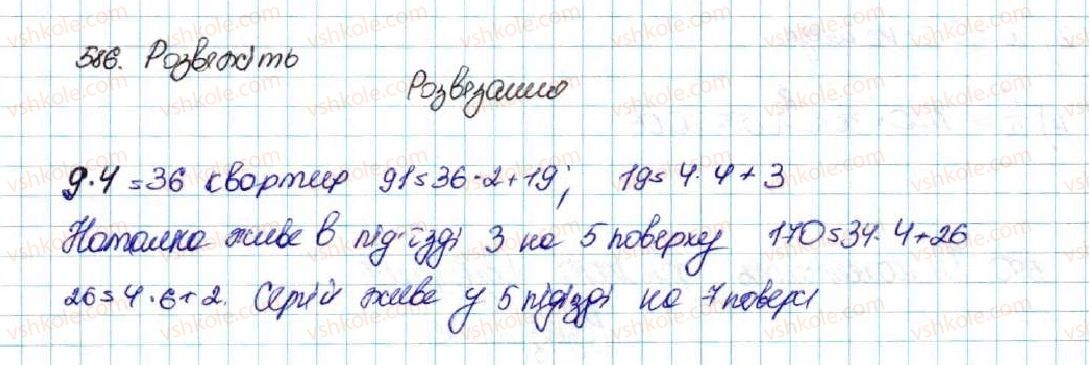 586. Розвяжіть
Розвязання
9·4 = 36 квартир 91 = 36·2+19; 19 = 4·4+3
Наталка живе в під'їзді 3 на 5 поверху 170 = 34·4+26
26 = 4·6+2. Сергій живе у 5 підїзді на 7 поверсі